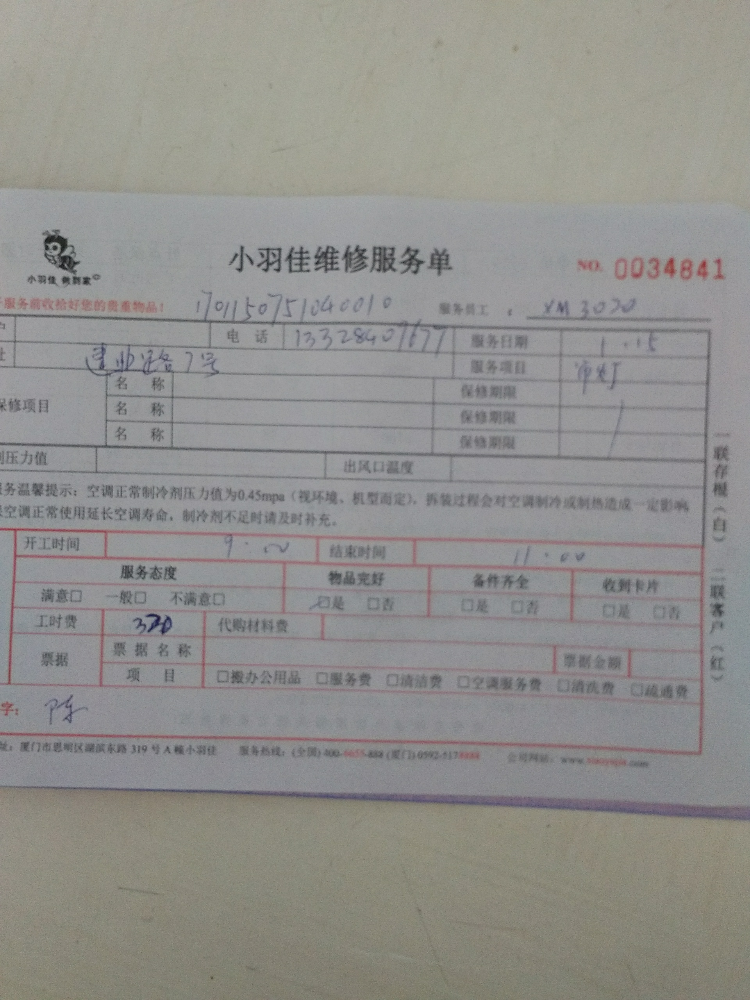 小羽佳维修服务单
NO. 0034841
小羽佳 做到家
服务前收拾好您的贵重物品！ 1701150751040010 服务员工： XM3020
电 话 13328407677 服务日期 1.15
址 建业路7号 服务项目
名 称 保修期限
保修项目 名 称 保修期限
名 称 保修期限
剂压力值 出风口温度
服务温馨提示：空调正常制冷剂压力值为0.45mpa（视环境、机型而定），拆装过程会对空调制冷或制热造成一定影响
空调正常使用延长空调寿命，制冷剂不足时请及时补充。
开工时间 9:00 结束时间 11:00
服务态度 物品完好 备件齐全 收到卡片
满意□ 一般□ 不满意□ ☑是 □否 □是 □否 □是 □否
工时费 320 代购材料费
票据 票据名称 票据金额
项 目 □搬办公用品 □服务费 □清洁费 □空调服务费 □清洗费 □疏通费
字： 陈
址：厦门市思明区湖滨东路 319 号 A 幢小羽佳 服务热线：(全国) 400-6655-888 (厦门) 0592-5178888 公司网站：www.xiaoyujia.com
一联存根（白） 二联客户（红）